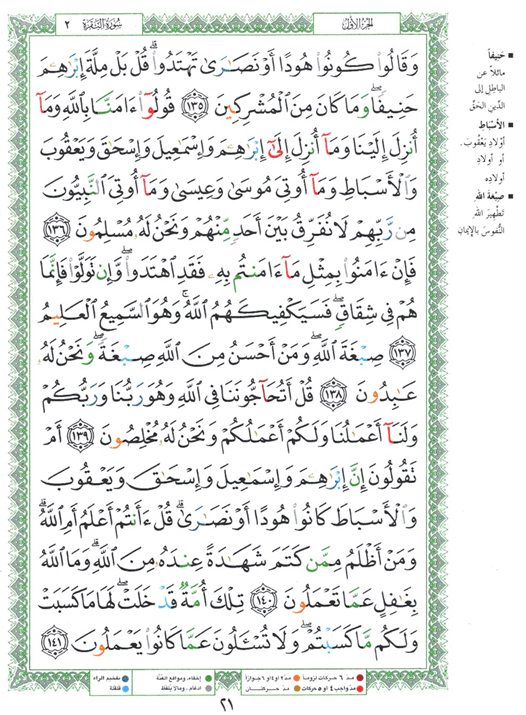 الجزء الأول
سورة البقرة ٢
وَقَالُوا۟ كُونُوا۟ هُودًا أَوْ نَصَـٰرَىٰ تَهْتَدُوا۟ۗ قُلْ بَلْ مِلَّةَ إِبْرَٰهِـۧمَ
حَنِيفًاۖ وَمَا كَانَ مِنَ ٱلْمُشْرِكِينَ ١٣٥ قُولُوٓا۟ ءَامَنَّا بِٱللَّهِ وَمَآ
أُنزِلَ إِلَيْنَا وَمَآ أُنزِلَ إِلَىٰٓ إِبْرَٰهِـۧمَ وَإِسْمَـٰعِيلَ وَإِسْحَـٰقَ وَيَعْقُوبَ
وَٱلْأَسْبَاطِ وَمَآ أُوتِىَ مُوسَىٰ وَعِيسَىٰ وَمَآ أُوتِىَ ٱلنَّبِيُّونَ
مِن رَّبِّهِمْ لَا نُفَرِّقُ بَيْنَ أَحَدٍ مِّنْهُمْ وَنَحْنُ لَهُۥ مُسْلِمُونَ ١٣٦
فَإِنْ ءَامَنُوا۟ بِمِثْلِ مَآ ءَامَنتُم بِهِۦ فَقَدِ ٱهْتَدَوا۟ۖ وَّإِن تَوَلَّوْا۟ فَإِنَّمَا
هُمْ فِى شِقَاقٍۖ فَسَيَكْفِيكَهُمُ ٱللَّهُۚ وَهُوَ ٱلسَّمِيعُ ٱلْعَلِيمُ
١٣٧ صِبْغَةَ ٱللَّهِۖ وَمَنْ أَحْسَنُ مِنَ ٱللَّهِ صِبْغَةًۖ وَنَحْنُ لَهُۥ
عَـٰبِدُونَ ١٣٨ قُلْ أَتُحَآجُّونَنَا فِى ٱللَّهِ وَهُوَ رَبُّنَا وَرَبُّكُمْ
وَلَنَآ أَعْمَـٰلُنَا وَلَكُمْ أَعْمَـٰلُكُمْ وَنَحْنُ لَهُۥ مُخْلِصُونَ ١٣٩ أَمْ
تَقُولُونَ إِنَّ إِبْرَٰهِـۧمَ وَإِسْمَـٰعِيلَ وَإِسْحَـٰقَ وَيَعْقُوبَ
وَٱلْأَسْبَاطَ كَانُوا۟ هُودًا أَوْ نَصَـٰرَىٰۗ قُلْ ءَأَنتُمْ أَعْلَمُ أَمِ ٱللَّهُۗ
وَمَنْ أَظْلَمُ مِمَّن كَتَمَ شَهَـٰدَةً عِندَهُۥ مِنَ ٱللَّهِۗ وَمَا ٱللَّهُ
بِغَـٰفِلٍ عَمَّا تَعْمَلُونَ ١٤٠ تِلْكَ أُمَّةٌ قَدْ خَلَتْۖ لَهَا مَا كَسَبَتْ
وَلَكُم مَّا كَسَبْتُمْۖ وَلَا تُسْـَٔلُونَ عَمَّا كَانُوا۟ يَعْمَلُونَ ١٤١
■ حَنِيفاً
مائلاً عن
الباطِل إلى
الدِّين الحَقّ
■ الأَسْبَاطِ
أَوْلادِ يَعْقُوبَ.
أو أولادِ
أولادِه
■ صِبْغَةَ اللهِ
تَطْهِيرَ اللهِ
النُّفوسَ بالإيمانِ
مدّ ٦ حركات لزوماً مدّ ٢ أو ٤ أو ٦ جوازاً
مدّ واجب ٤ أو ٥ حركات مدّ حركتــان
إخفاء، ومواقع الغُنَّة
ادغام، وما لا يُلفَظ
تفخيم الراء
قلقلة
٢١